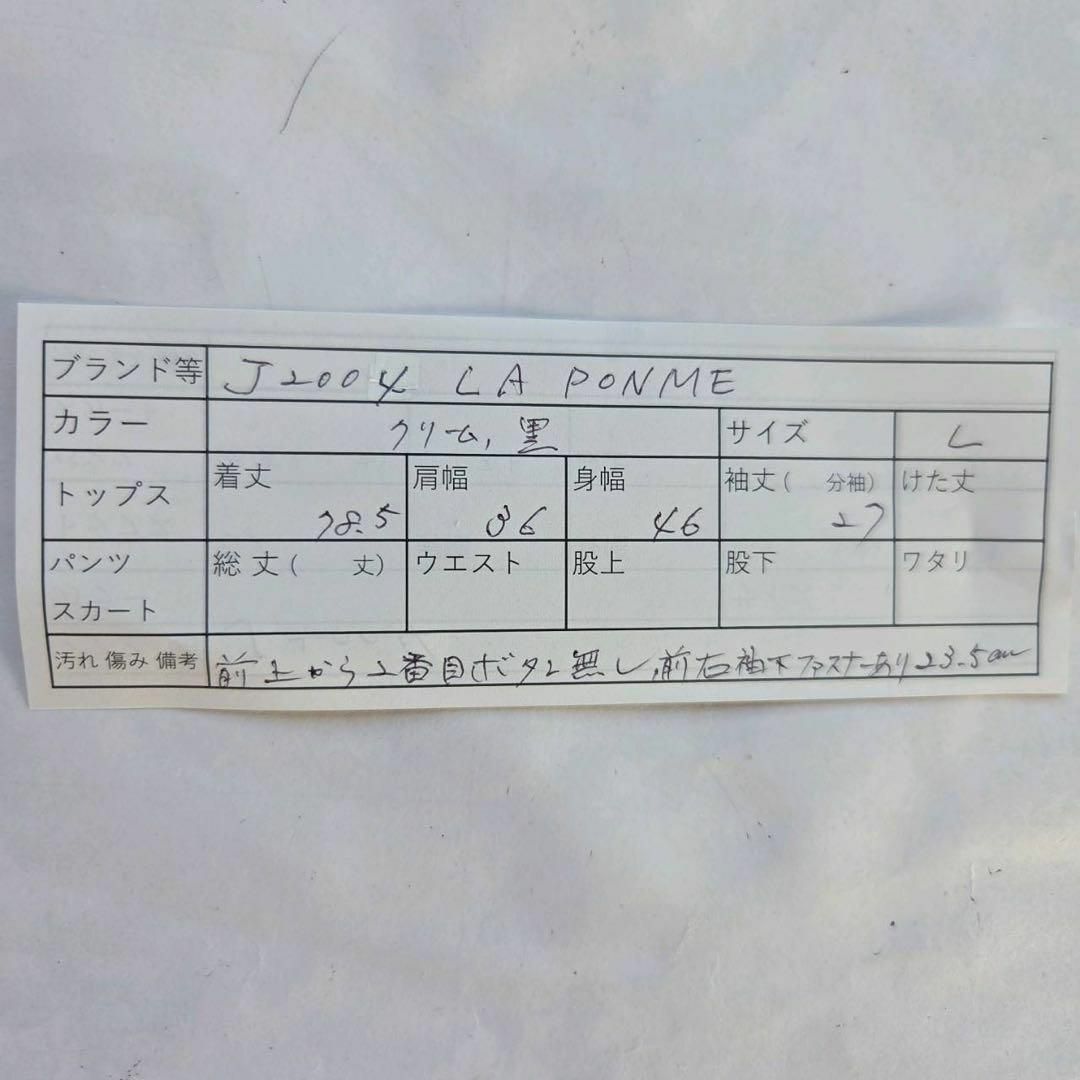 ブランド等 J2004 LA PONME
カラー クリーム,黒 サイズ L
トップス 着丈 78.5 肩幅 36 身幅 46 袖丈( 分袖) 27 けた丈
パンツ スカート 総丈( 丈) ウエスト 股上 股下 ワタリ
汚れ 傷み 備考 前上から2番目ボタン無し,前右袖下ファスナーあり23.5cm